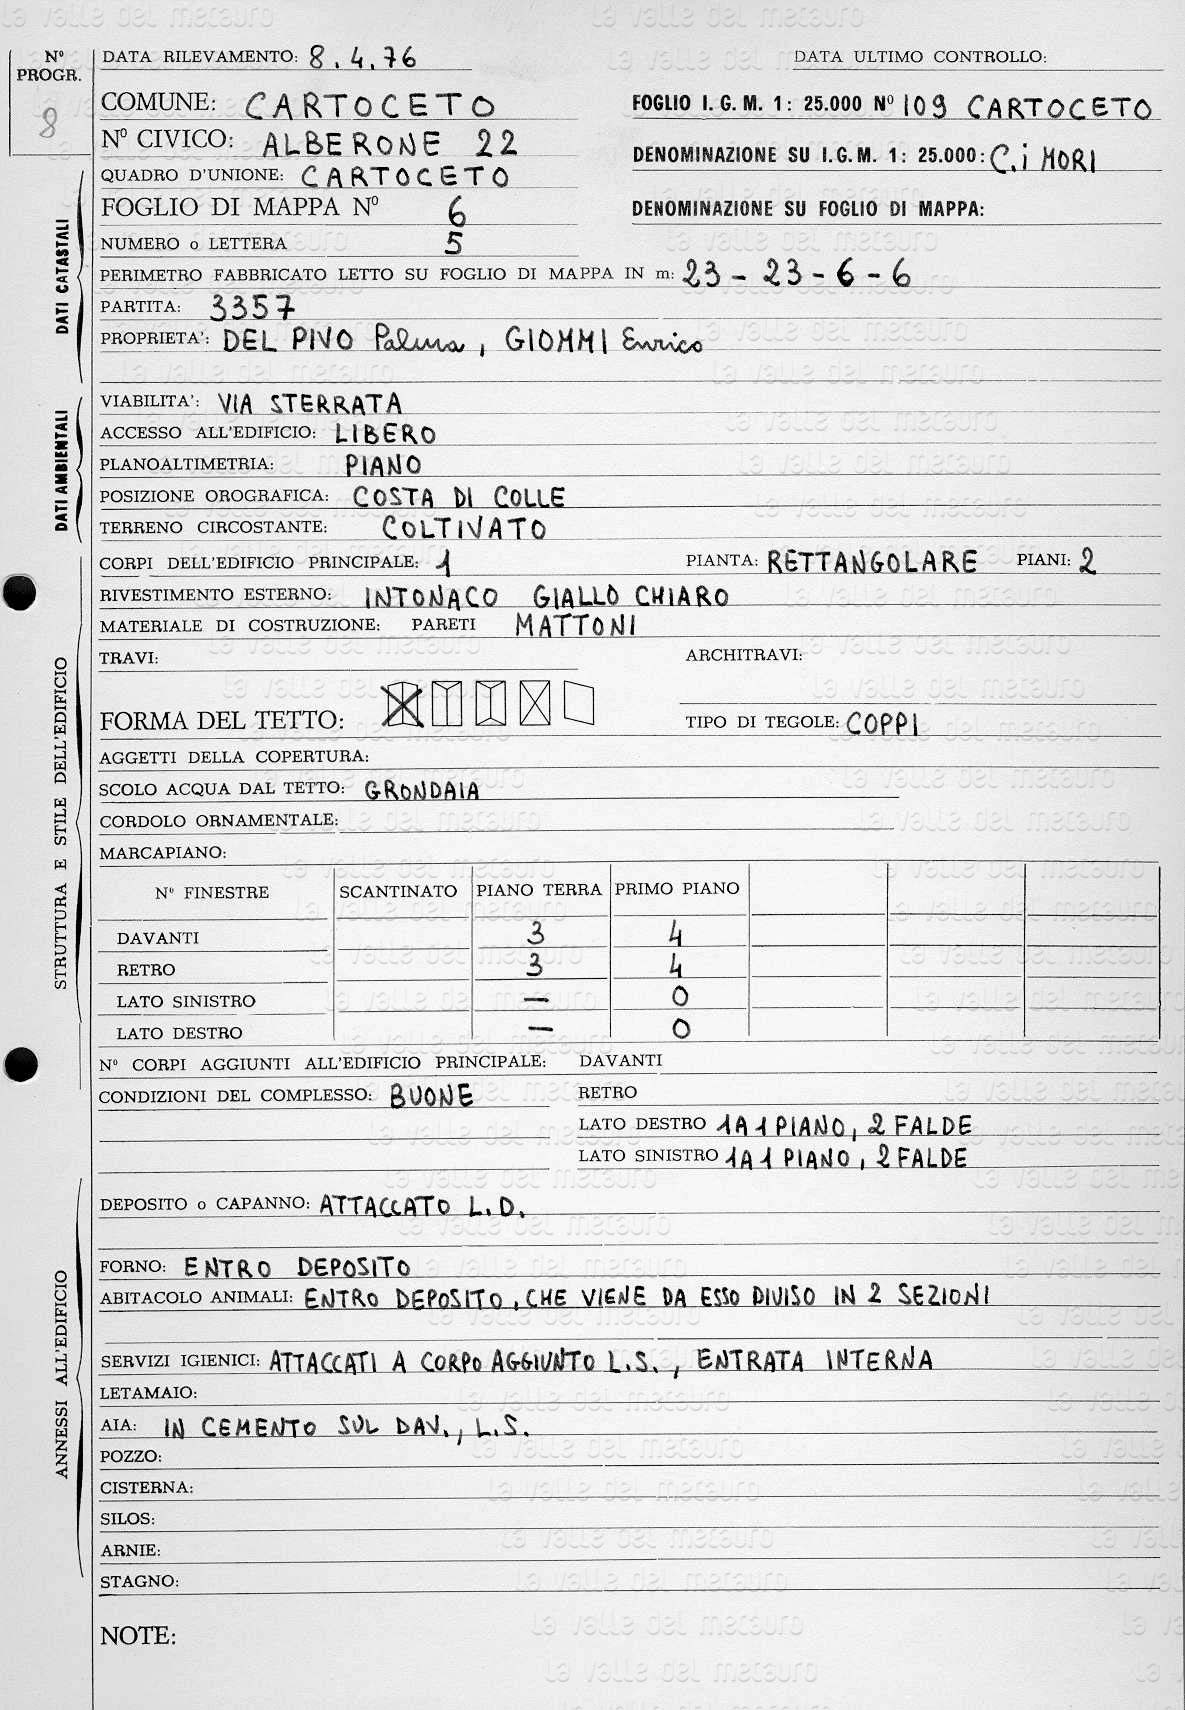 Nº PROGR. 8
DATA RILEVAMENTO: 8.4.76 DATA ULTIMO CONTROLLO:
COMUNE: CARTOCETO FOGLIO I.G.M. 1: 25.000 Nº 109 CARTOCETO
Nº CIVICO: ALBERONE 22 DENOMINAZIONE SU I.G.M. 1: 25.000: C.i MORI
QUADRO D'UNIONE: CARTOCETO
FOGLIO DI MAPPA Nº 6 DENOMINAZIONE SU FOGLIO DI MAPPA:
NUMERO o LETTERA 5
PERIMETRO FABBRICATO LETTO SU FOGLIO DI MAPPA IN m: 23 - 23 - 6 - 6
PARTITA: 3357
PROPRIETA': DEL PIVO Palma, GIOMMI Enrico
DATI CATASTALI
VIABILITA': VIA STERRATA
ACCESSO ALL'EDIFICIO: LIBERO
PLANOALTIMETRIA: PIANO
POSIZIONE OROGRAFICA: COSTA DI COLLE
TERRENO CIRCOSTANTE: COLTIVATO
DATI AMBIENTALI
CORPI DELL'EDIFICIO PRINCIPALE: 1 PIANTA: RETTANGOLARE PIANI: 2
RIVESTIMENTO ESTERNO: INTONACO GIALLO CHIARO
MATERIALE DI COSTRUZIONE: PARETI MATTONI
TRAVI: ARCHITRAVI:
FORMA DEL TETTO: TIPO DI TEGOLE: COPPI
AGGETTI DELLA COPERTURA:
SCOLO ACQUA DAL TETTO: GRONDAIA
CORDOLO ORNAMENTALE:
MARCAPIANO:
Nº FINESTRE SCANTINATO PIANO TERRA PRIMO PIANO
DAVANTI 3 4
RETRO 3 4
LATO SINISTRO — 0
LATO DESTRO — 0
STRUTTURA E STILE DELL'EDIFICIO
Nº CORPI AGGIUNTI ALL'EDIFICIO PRINCIPALE: DAVANTI
CONDIZIONI DEL COMPLESSO: BUONE RETRO
LATO DESTRO 1 A 1 PIANO, 2 FALDE
LATO SINISTRO 1 A 1 PIANO, 2 FALDE
DEPOSITO o CAPANNO: ATTACCATO L.D.
FORNO: ENTRO DEPOSITO
ABITACOLO ANIMALI: ENTRO DEPOSITO, CHE VIENE DA ESSO DIVISO IN 2 SEZIONI
SERVIZI IGIENICI: ATTACCATI A CORPO AGGIUNTO L.S., ENTRATA INTERNA
LETAMAIO:
AIA: IN CEMENTO SUL DAV., L.S.
POZZO:
CISTERNA:
SILOS:
ARNIE:
STAGNO:
ANNESSI ALL'EDIFICIO
NOTE:
la valle del metauro